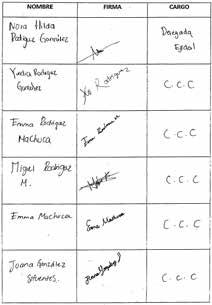 NOMBRE FIRMA CARGO
Nora Hilda
Rodriguez González Delegada
Ejidal
Yadira Rodriguez
González Rodriguez C.C.C
Emma Rodriguez
Machuca C.C.C
Miguel Rodriguez
M. C.C.C
Emma Machuca Emma Machuca C.C.C
Joana González
Sifuentes. C.C.C